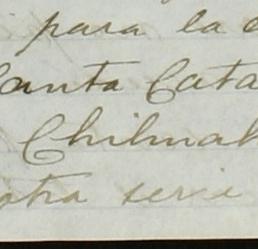 para la
Santa Cata
Chilmal
otra serie